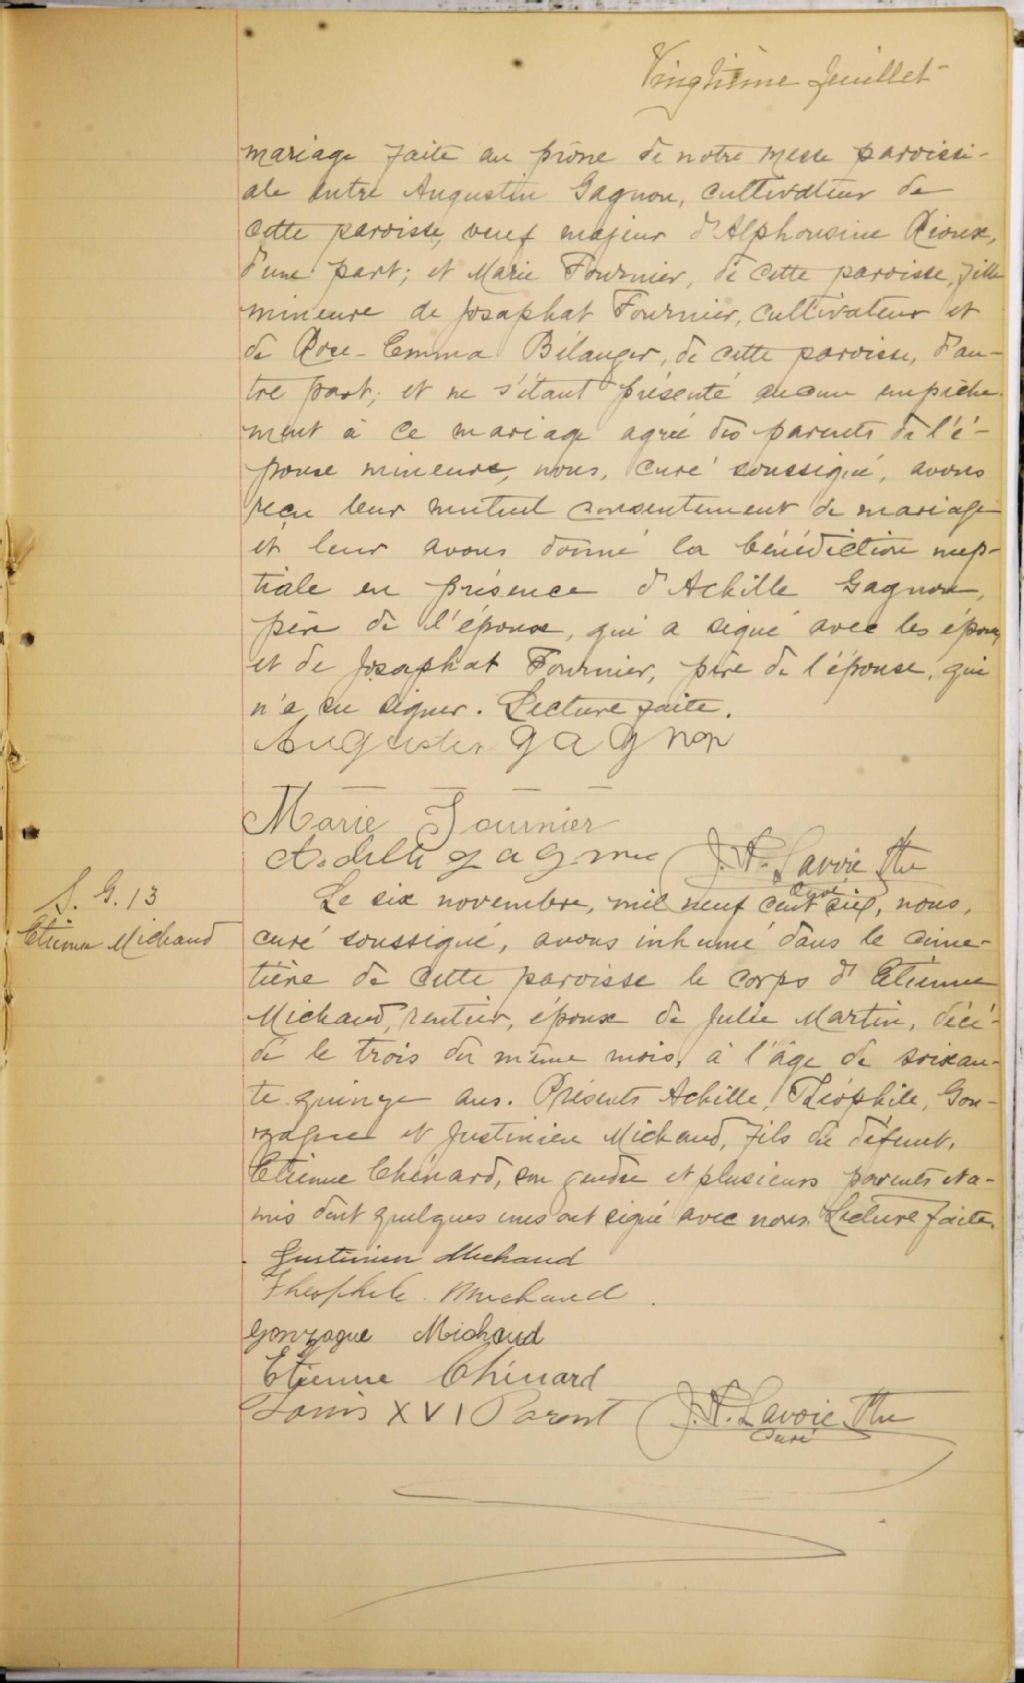 Vingtième feuillet
mariage faite au prône de notre messe paroissi-
ale entre Augustin Gagnon, cultivateur de
cette paroisse, veuf majeur d'Alphonsine Rioux,
d'une part; et Marie Fournier, de cette paroisse, fille
mineure de Josaphat Fournier, cultivateur et
de Rose-Emma Bélanger, de cette paroisse, d'au-
tre part; et ne s'étant présenté aucun empêche-
ment à ce mariage agréé des parents de l'é-
pouse mineure, nous, curé soussigné, avons
reçu leur mutuel consentement de mariage
et leur avons donné la bénédiction nup-
tiale en présence d'Achille Gagnon,
père de l'époux, qui a signé avec les époux,
et de Josaphat Fournier, père de l'épouse, qui
n'a su signer. Lecture faite.
Augustin Gagnon
Marie Fournier
Achille Gagnon J. A. Lavoie Ptre
Curé
S. G. 13
Etienne Michaud
Le six novembre, mil neuf cent six, nous,
curé soussigné, avons inhumé dans le cime-
tière de cette paroisse le corps d'Etienne
Michaud, rentier, époux de Julie Martin, décé-
dé le trois du même mois, à l'âge de soixan-
te quinze ans. Présents Achille, Théophile, Gon-
zague et Justinien Michaud, fils du défunt,
Etienne Chénard, son gendre et plusieurs parents et a-
mis dont quelques uns ont signé avec nous. Lecture faite.
Justinien Michaud
Théophile Michaud
Gonzague Michaud
Etienne Chénard
Louis XVI Parent J. A. Lavoie Ptre
Curé